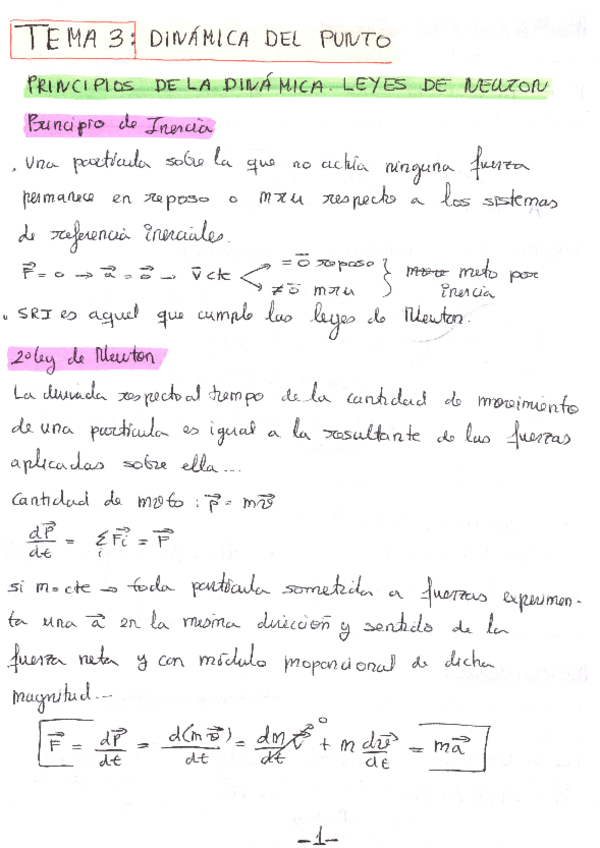 TEMA 3: DINÁMICA DEL PUNTO
PRINCIPIOS DE LA DINÁMICA. LEYES DE NEWTON
Principio de Inercia
. Una partícula sobre la que no actúa ninguna fuerza
permanece en reposo o mru respecto a los sistemas
de referencia inerciales.
F⃗ = 0 → a⃗ = 0⃗ → v⃗ cte < = 0⃗ reposo } mvto por
≠ 0⃗ mru } inercia
. SRI es aquel que cumple las leyes de Newton.
2º ley de Newton
La derivada respecto al tiempo de la cantidad de movimiento
de una partícula es igual a la resultante de las fuerzas
aplicadas sobre ella...
Cantidad de mvto : p⃗ = mv⃗
dp⃗/dt = Σᵢ F⃗i = F⃗
si m = cte → toda partícula sometida a fuerzas experimen-
ta una a⃗ en la misma dirección y sentido de la
fuerza neta y con módulo proporcional de dicha
magnitud...
F⃗ = dp⃗/dt = d(mv⃗)/dt = dm/dt v⃗ ⁰ + m dv⃗/dt = ma⃗
-1-